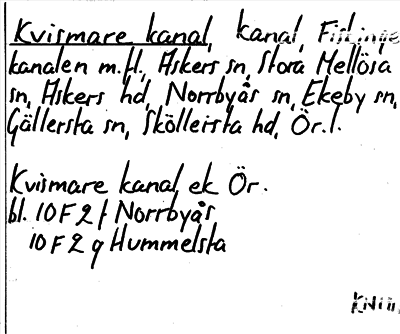 Kvismare kanal, kanal, Fiskinge
kanalen m.fl., Askers sn, Stora Mellösa
sn, Askers hd, Norrbyås sn, Ekeby sn,
Gällersta sn, Sköllersta hd, Ör.l.
Kvismare kanal, ek Ör.
bl. 10 F 2 f Norrbyås
10 F 2 g Hummelsta